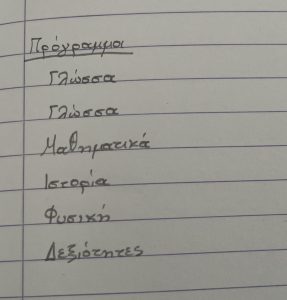 Πρόγραμμα
Γλώσσα
Γλώσσα
Μαθηματικά
Ιστορία
Φυσική
Δεξιότητες